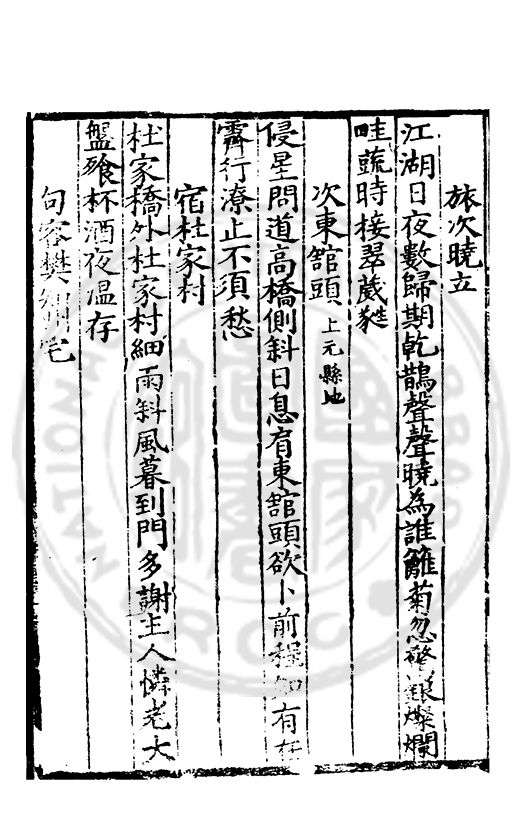 旅次曉立
江湖日夜數歸期乾鵲聲聲曉為誰籬菊忽驚銀燦爛
畦蔬時接翠葳蕤
次東舘頭上元縣地
侵星問道高橋側斜日息肩東舘頭欲卜前程知有在
霽行潦止不須愁
宿杜家村
杜家橋外杜家村細雨斜風暮到門多謝主人憐老大
盤飧杯酒夜温存
句容樊 宅